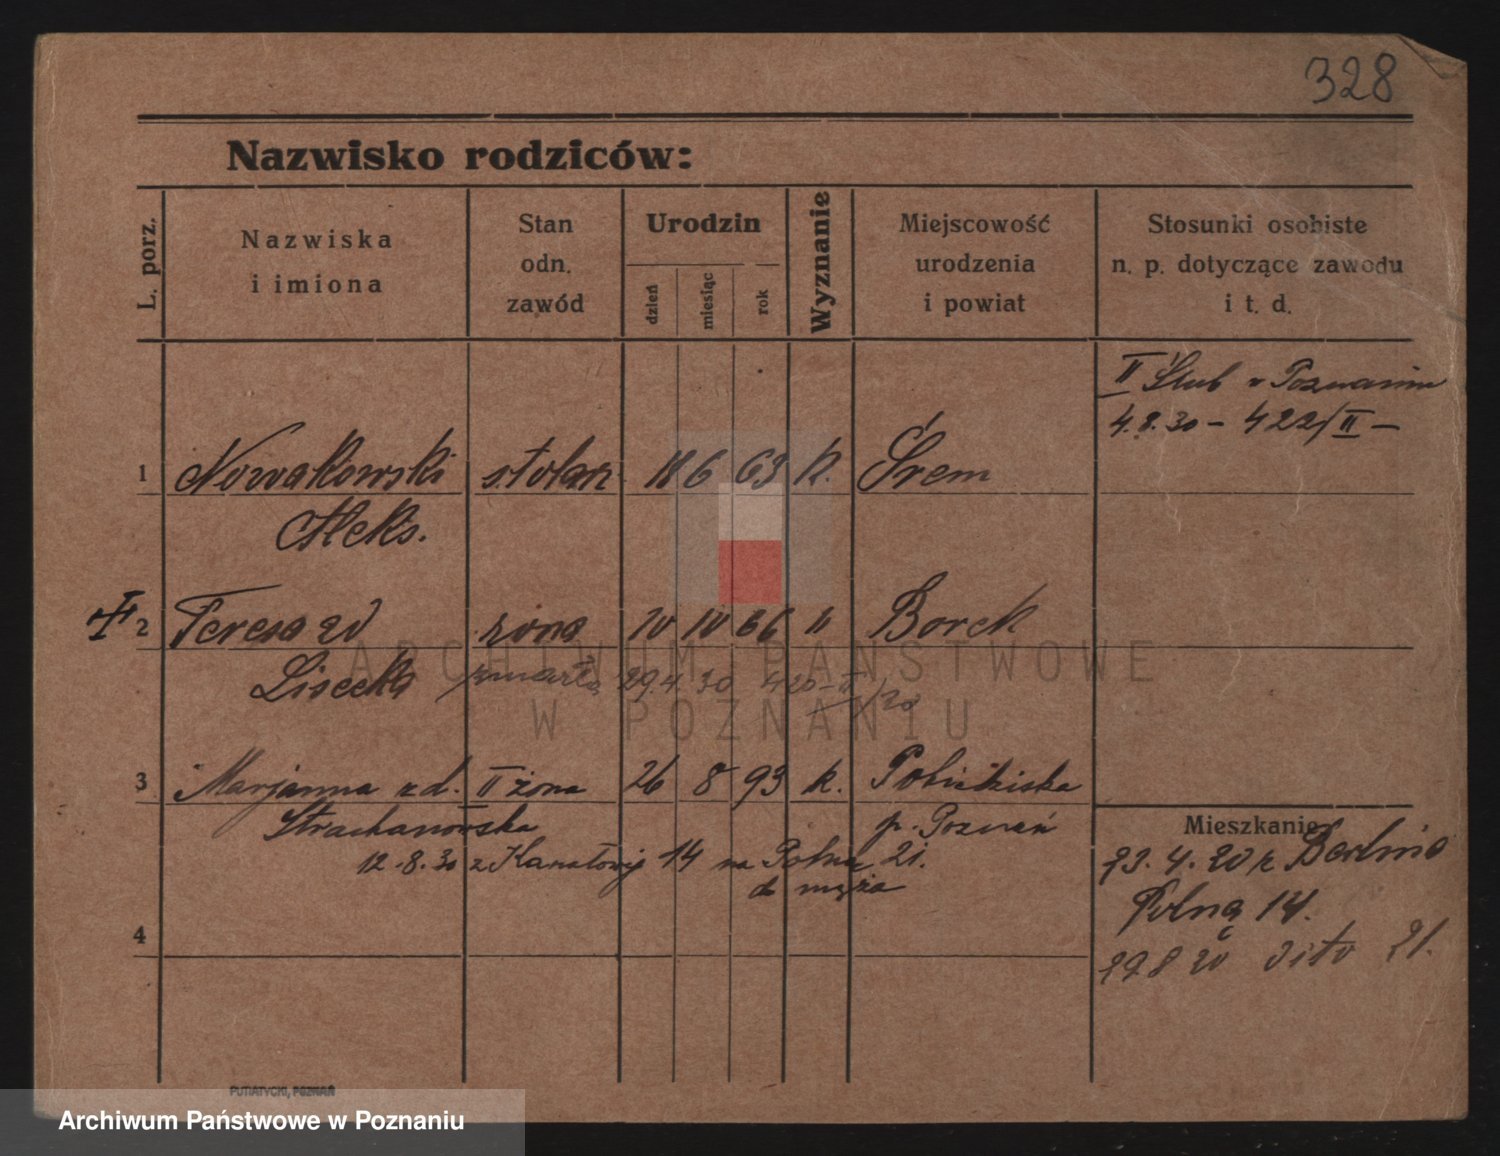 328
Nazwisko rodziców:
L. porz.
Nazwiska
i imiona
Stan
odn.
zawód
Urodzin
dzień
miesiąc
rok
Wyznanie
Miejscowość
urodzenia
i powiat
Stosunki osobiste
n. p. dotyczące zawodu
i t. d.
II Ślub w Poznaniu
4.8.30 – 422/II –
1 Nowakowski stolarz 18 6 63 k. Śrem
Aleks.
2 Teresa zd żona 10 10 66 " Borek
Lisecka zmarła 29.4.30 420-II/30
3 Marjanna zd. II żona 26 8 93 k. Pobiedziska
Strachanowska p. Poznań
12.8.30 z Kanałowej 14 na Polną 21.
do męża
4
Mieszkanie
23.4.20 z Berlina
Polna 14.
29 8 20 dito 21.
PUTIATYCKI, POZNAŃ
ARCHIWUM PAŃSTWOWE
W POZNANIU
Archiwum Państwowe w Poznaniu